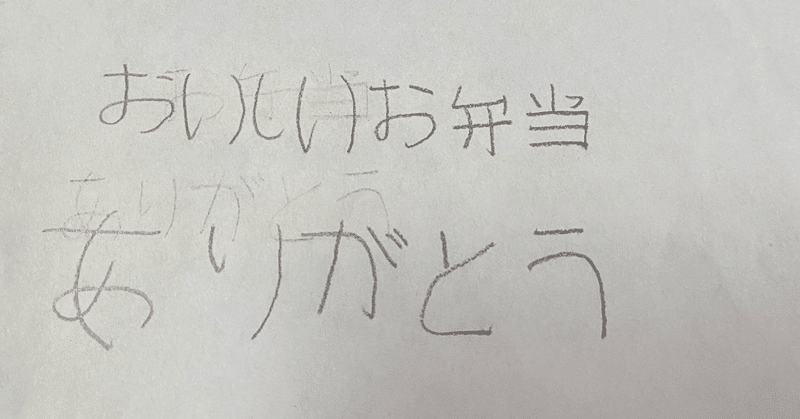 おいしいお弁当
ありがとう